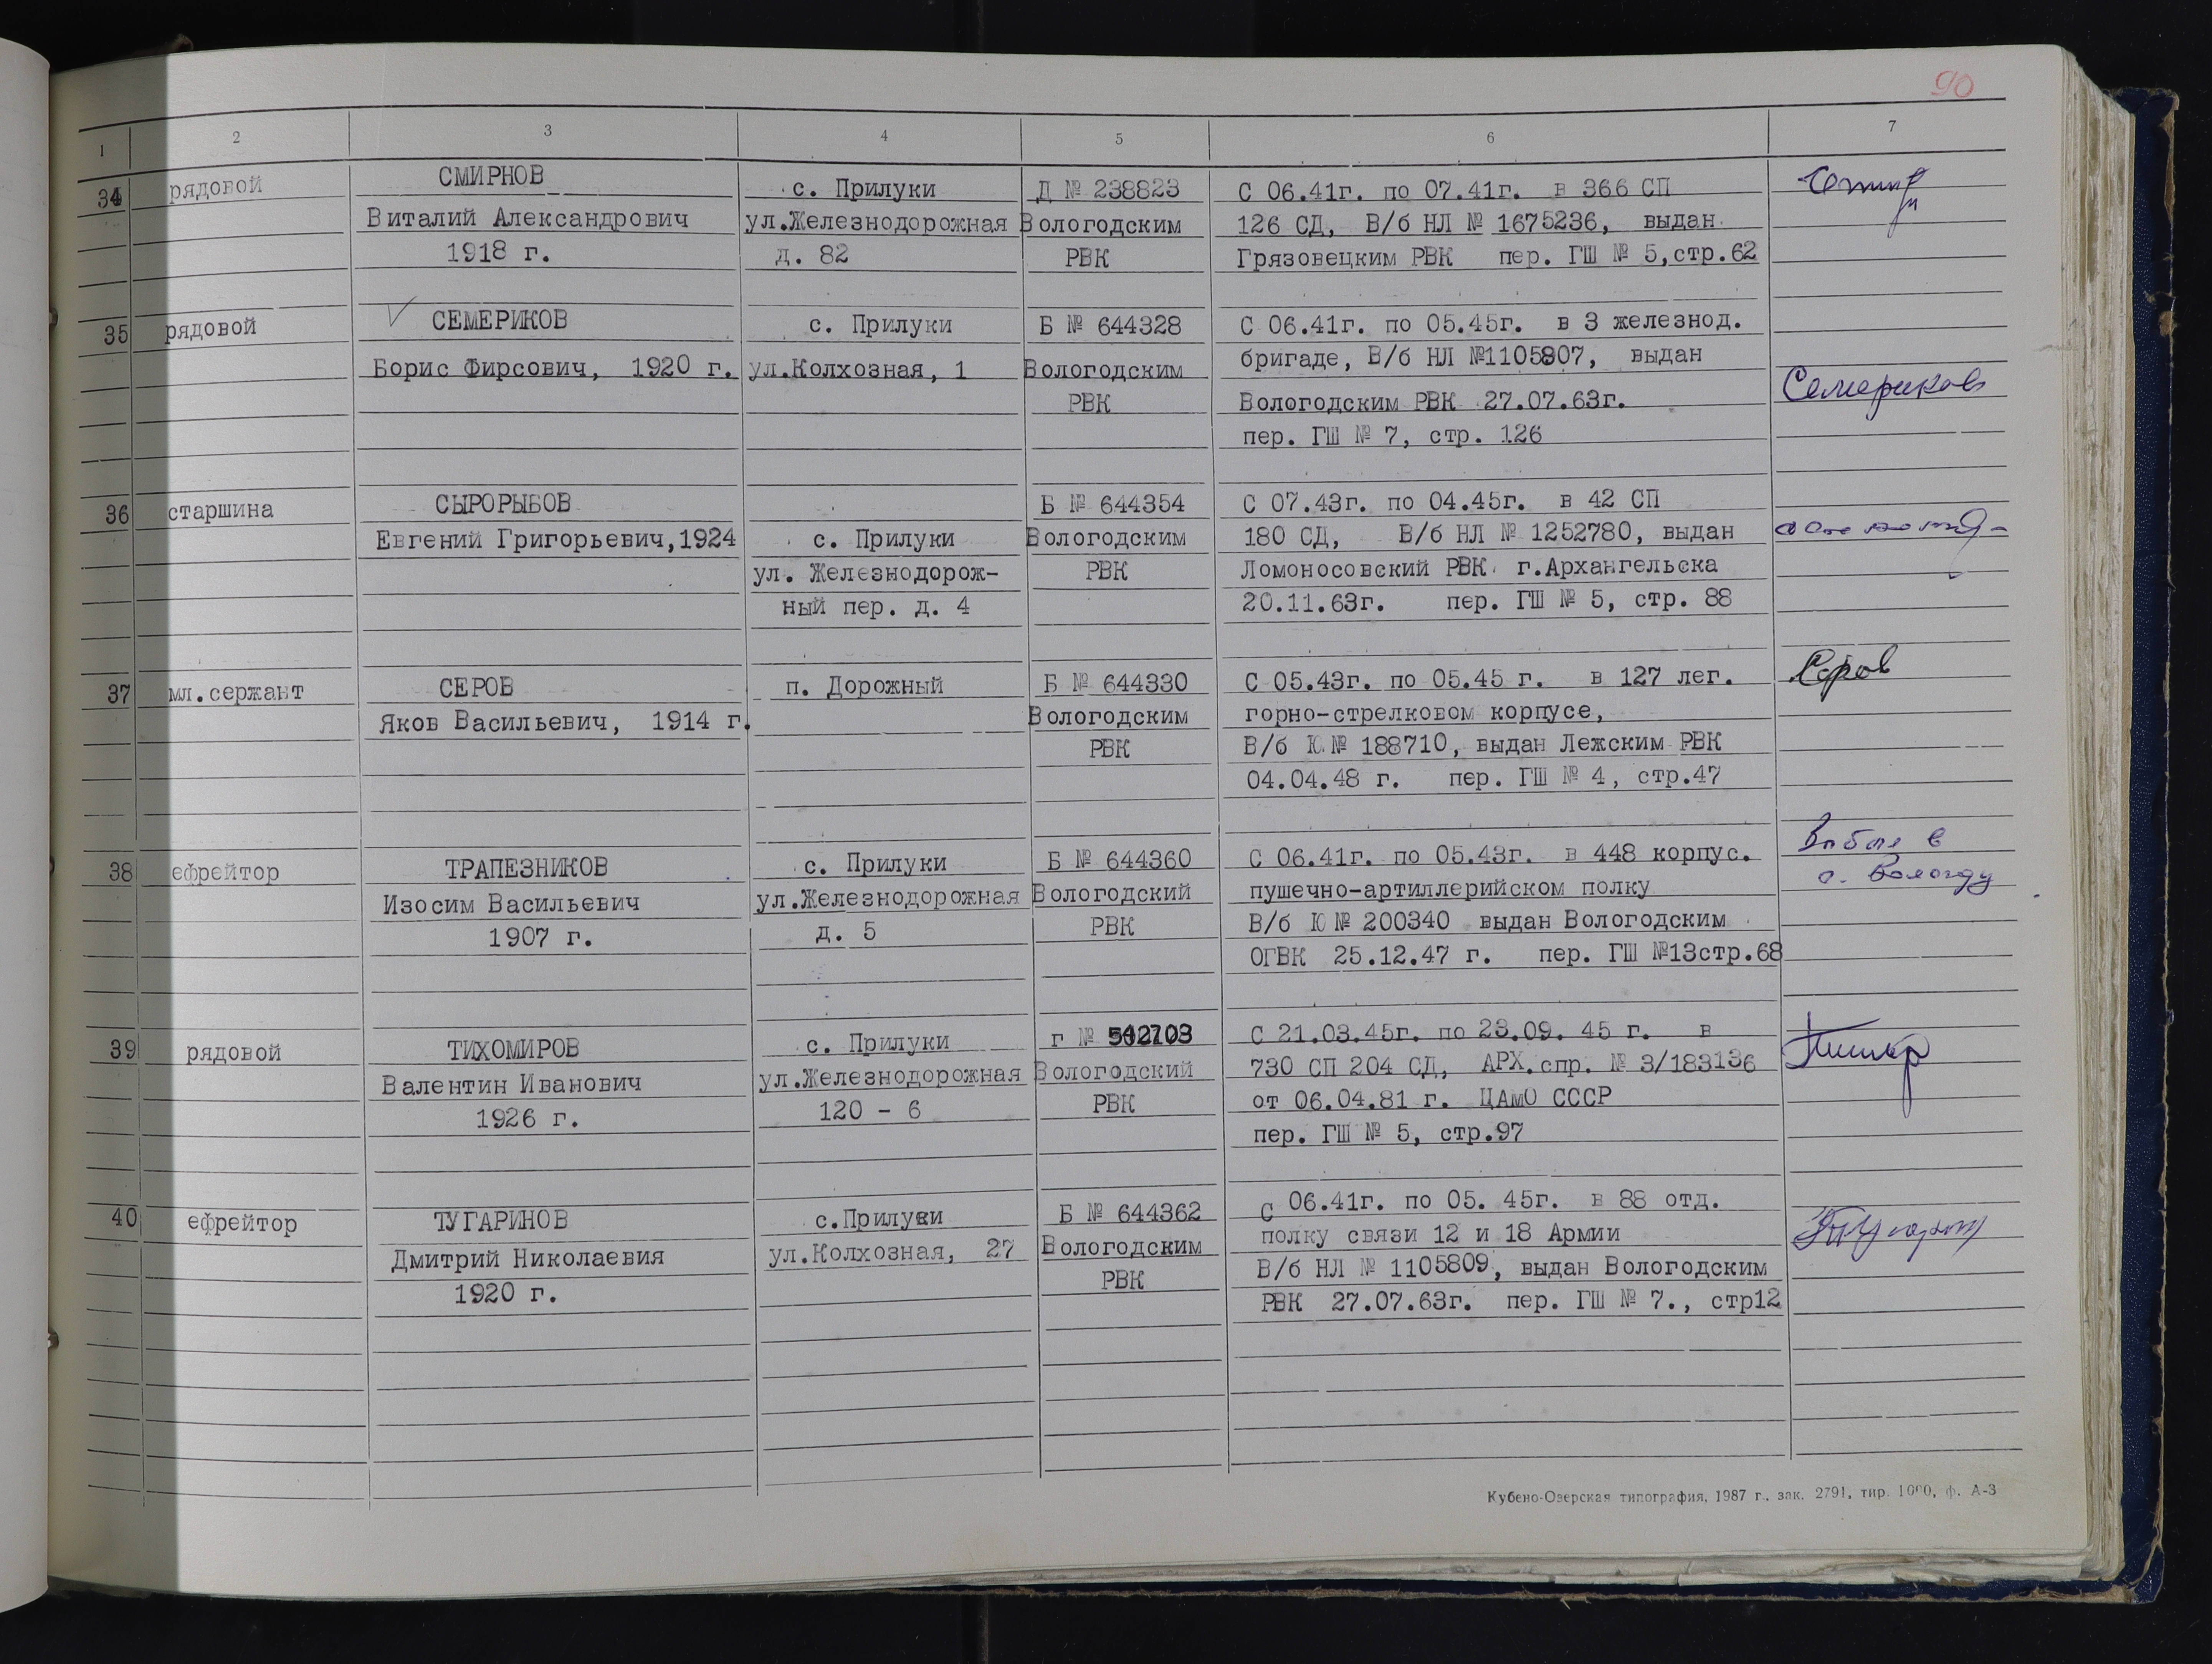 90
1 2 3 4 5 6 7
34 рядовой СМИРНОВ с. Прилуки Д № 238823 С 06.41г. по 07.41г. в 366 СП
Виталий Александрович ул.Железнодорожная Вологодским 126 СД, В/б НЛ № 1675236, выдан
1918 г. д. 82 РВК Грязовецким РВК пер. ГШ № 5,стр.62
35 рядовой СЕМЕРИКОВ с. Прилуки Б № 644328 С 06.41г. по 05.45г. в 3 железнод.
Борис Фирсович, 1920 г. ул.Колхозная, 1 Вологодским бригаде, В/б НЛ №1105807, выдан
РВК Вологодским РВК 27.07.63г. Семериков
пер. ГШ № 7, стр. 126
36 старшина СЫРОРЫБОВ Б № 644354 С 07.43г. по 04.45г. в 42 СП
Евгений Григорьевич,1924 с. Прилуки Вологодским 180 СД, В/б НЛ № 1252780, выдан
ул. Железнодорож- РВК Ломоносовский РВК г.Архангельска
ный пер. д. 4 20.11.63г. пер. ГШ № 5, стр. 88
37 мл.сержант СЕРОВ п. Дорожный Б № 644330 С 05.43г. по 05.45 г. в 127 лег. Серов
Яков Васильевич, 1914 г. Вологодским горно-стрелковом корпусе,
РВК В/б Ю № 188710, выдан Лежским РВК
04.04.48 г. пер. ГШ № 4, стр.47
38 ефрейтор ТРАПЕЗНИКОВ с. Прилуки Б № 644360 С 06.41г. по 05.43г. в 448 корпус. Выбыл в
Изосим Васильевич ул.Железнодорожная Вологодский пушечно-артиллерийском полку г. Вологду
1907 г. д. 5 РВК В/б Ю № 200340 выдан Вологодским
ОГВК 25.12.47 г. пер. ГШ №13стр.68
39 рядовой ТИХОМИРОВ с. Прилуки г № С 21.03.45г. по 23.09. 45 г. в
Валентин Иванович ул.Железнодорожная Вологодский 730 СП 204 СД, АРХ.спр. № 3/183136
1926 г. 120 - 6 РВК от 06.04.81 г. ЦАмО СССР
пер. ГШ № 5, стр.97
40 ефрейтор ТУГАРИНОВ с.Прилуки Б № 644362 С 06.41г. по 05. 45г. в 88 отд.
Дмитрий Николаевия ул.Колхозная, 27 Вологодским полку связи 12 и 18 Армии
1920 г. РВК В/б НЛ № 1105809, выдан Вологодским
РВК 27.07.63г. пер. ГШ № 7., стр12
Кубено-Озерская типография, 1987 г., зак. 2791, тир. 1000, ф. А-3